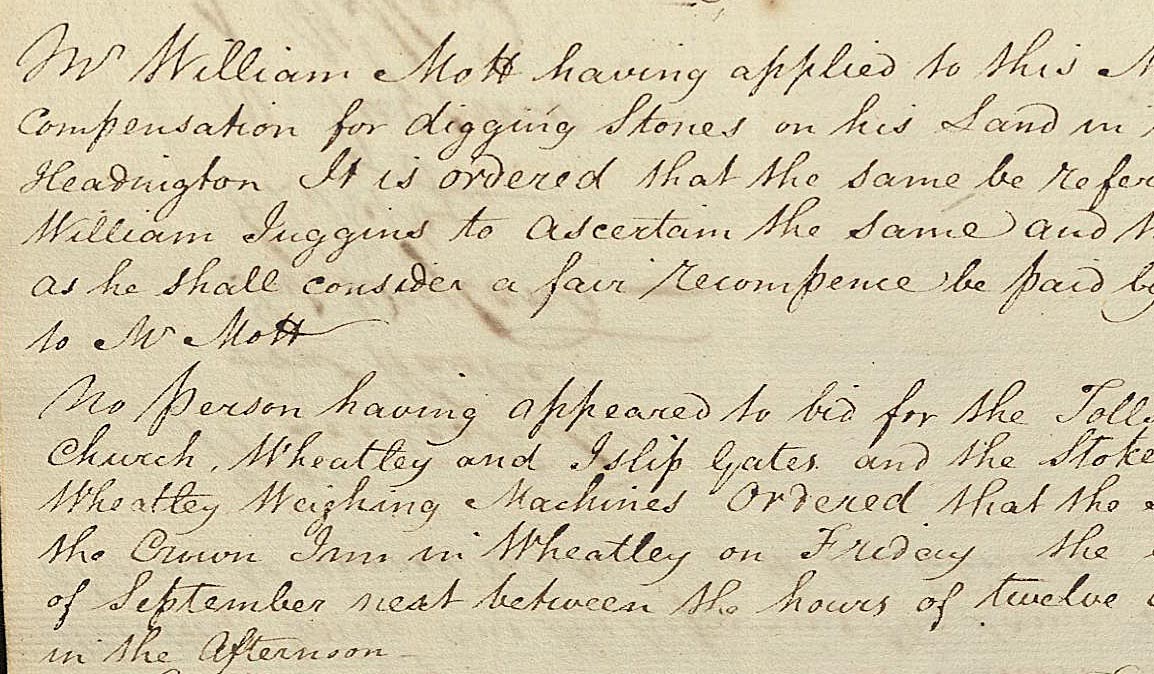 Mr William Mott having applied to this
Compensation for digging Stones on his Land in
Headington It is ordered that the same be refer
William Juggins to ascertain the same and
as he shall consider a fair recompence be paid by
to Mr Mott
No Person having appeared to bid for the Tolls
Church, Wheatley and Islip Gates and the Stoke
Wheatley Weighing Machines Ordered that the
the Crown Inn in Wheatley on Friday the
of September next between the hours of twelve
in the Afternoon